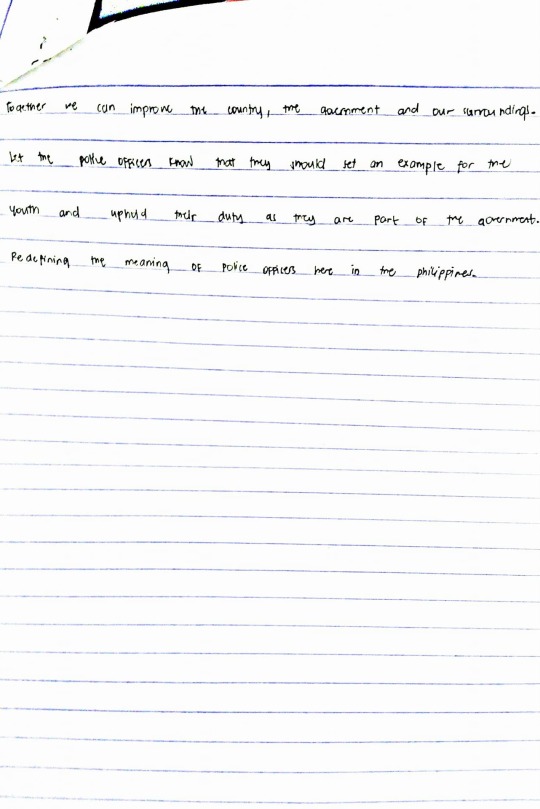 Together we can improve the country, the government and our surroundings.
Let the police officers know that they should set an example for the
youth and uphold their duty as they are part of the government.
Redefining the meaning of police officers here in the philippines.